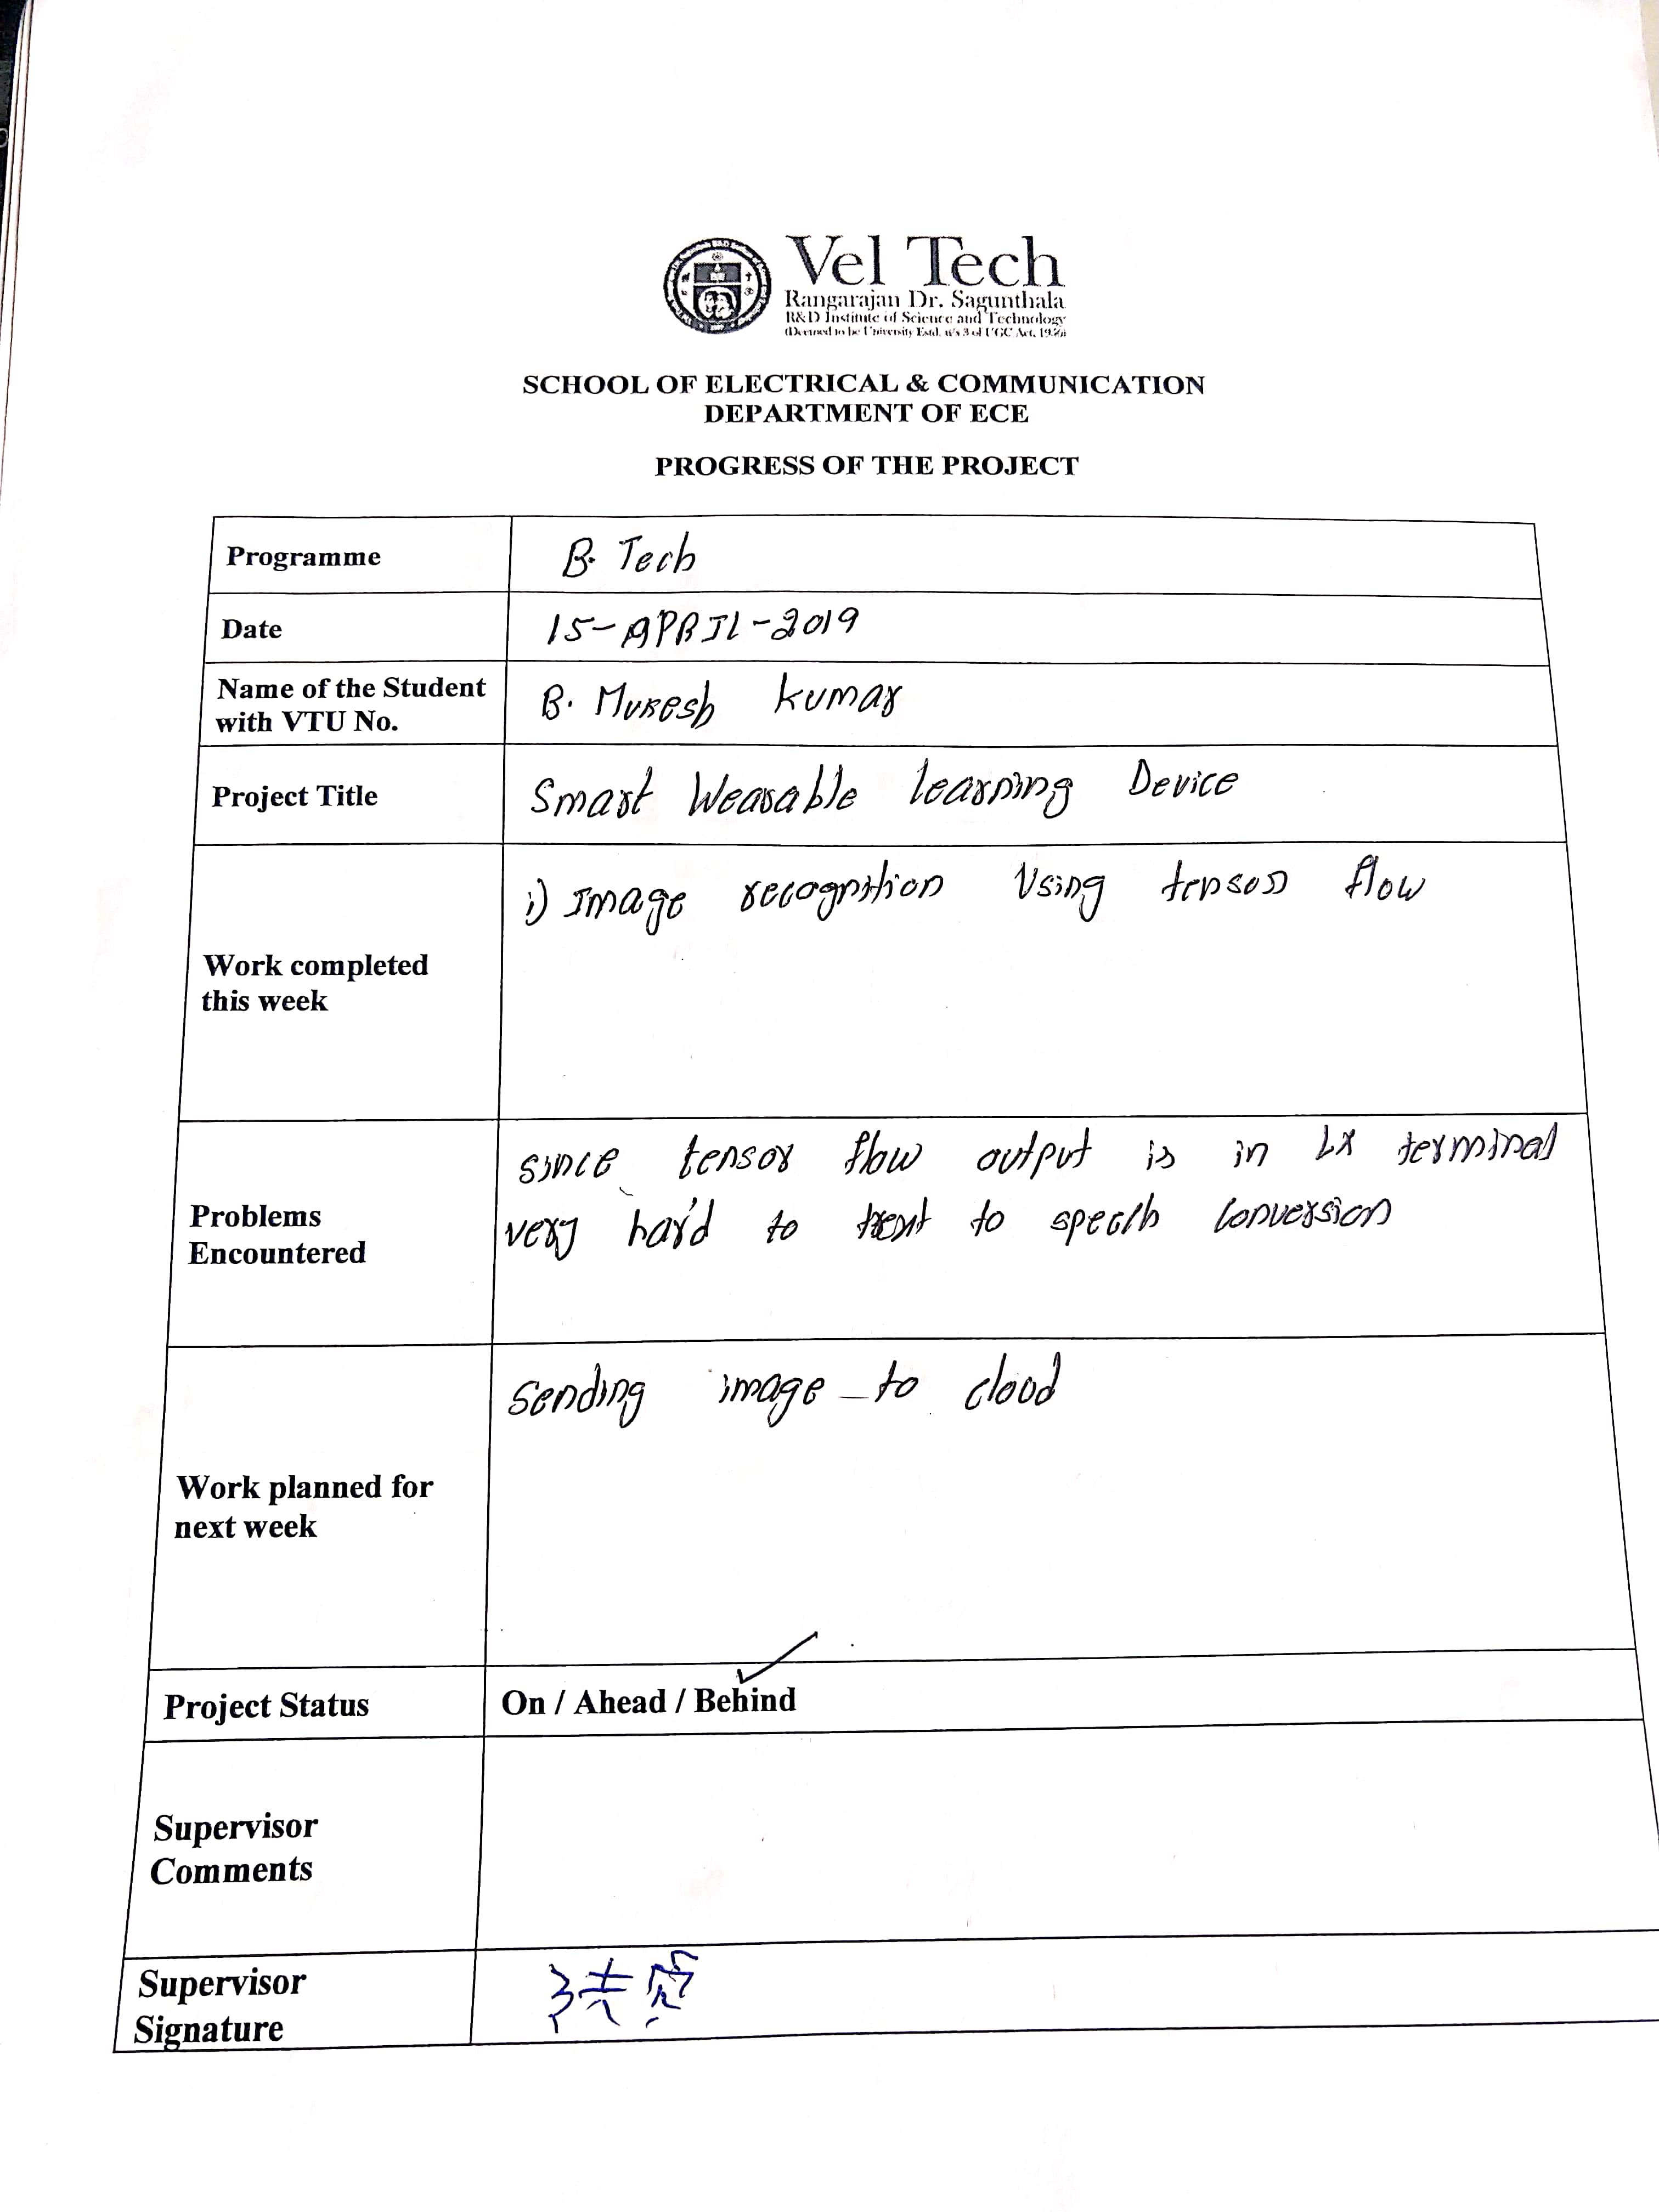 Vel Tech
Rangarajan Dr. Sagunthala
R&D Institute of Science and Technology
(Deemed to be University Estd. u/s 3 of UGC Act, 1956)
SCHOOL OF ELECTRICAL & COMMUNICATION
DEPARTMENT OF ECE
PROGRESS OF THE PROJECT
Programme
B. Tech
Date
15-APRIL-2019
Name of the Student
with VTU No.
B. Mukesh kumar
Project Title
Smart Wearable learning Device
Work completed
this week
i) Image recognition Using tensor flow
Problems
Encountered
since tensor flow output is in LX terminal
very hard to text to speech conversion
Work planned for
next week
sending image to cloud
Project Status
On / Ahead / Behind
Supervisor
Comments
Supervisor
Signature